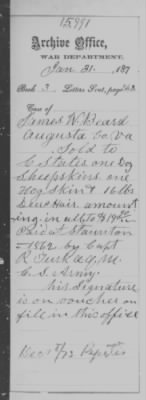 15,991
Archive Office,
WAR DEPARTMENT.
Jan 31. 187
Book 3. Letters Sent, page 63
Case of
James W. Beard
Augusta Co. Va
Sold to
C States one Dog
Sheepskins one
Hog Skin & 16 lbs
Deer Hair amount
ing in all to $19
Paid at Staunton
1862 by Capt
R Turk a.q.m.
C. S. Army.
his signature
is on vouchers on
file in this office
Dec